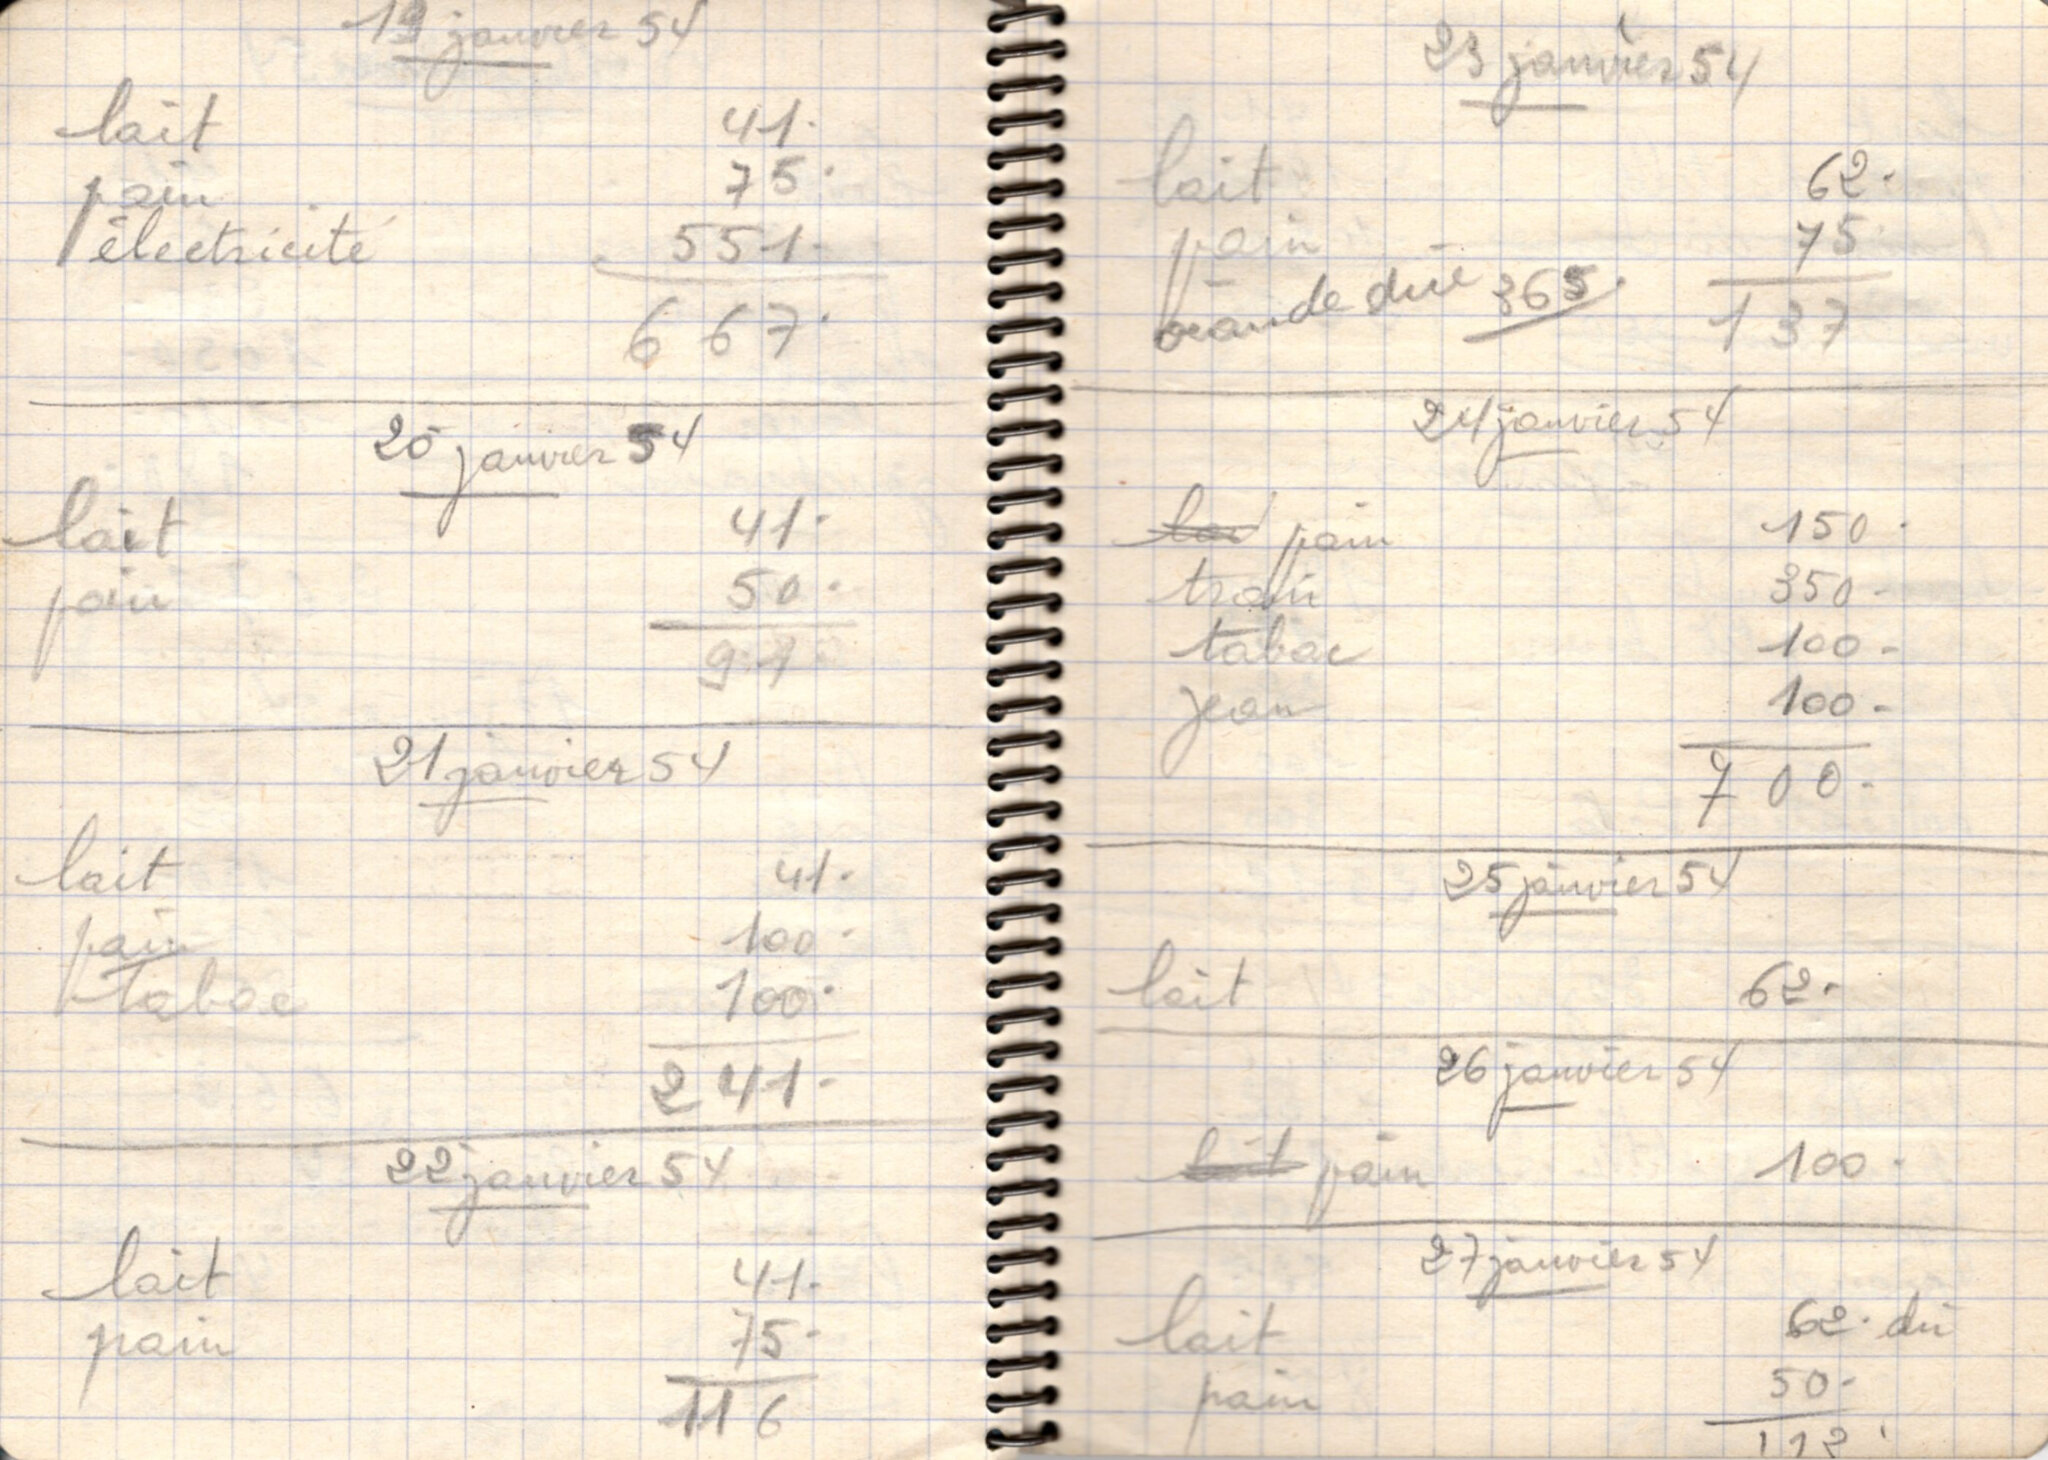 19 janvier 54
lait 41.
pain 75.
électricité 551.
667.
20 janvier 54
lait 41.
pain 50.
91.
21 janvier 54
lait 41.
pain 100.
tabac 100.
241.
22 janvier 54
lait 41.
pain 75.
116
23 janvier 54
lait 62.
pain 75.
viande due 365.
137
24 janvier 54
lai pain 150.
train 350.
tabac 100.
jean 100.
700.
25 janvier 54
lait 62.
26 janvier 54
lait pain 100.
27 janvier 54
lait 62. dû
pain 50.
112